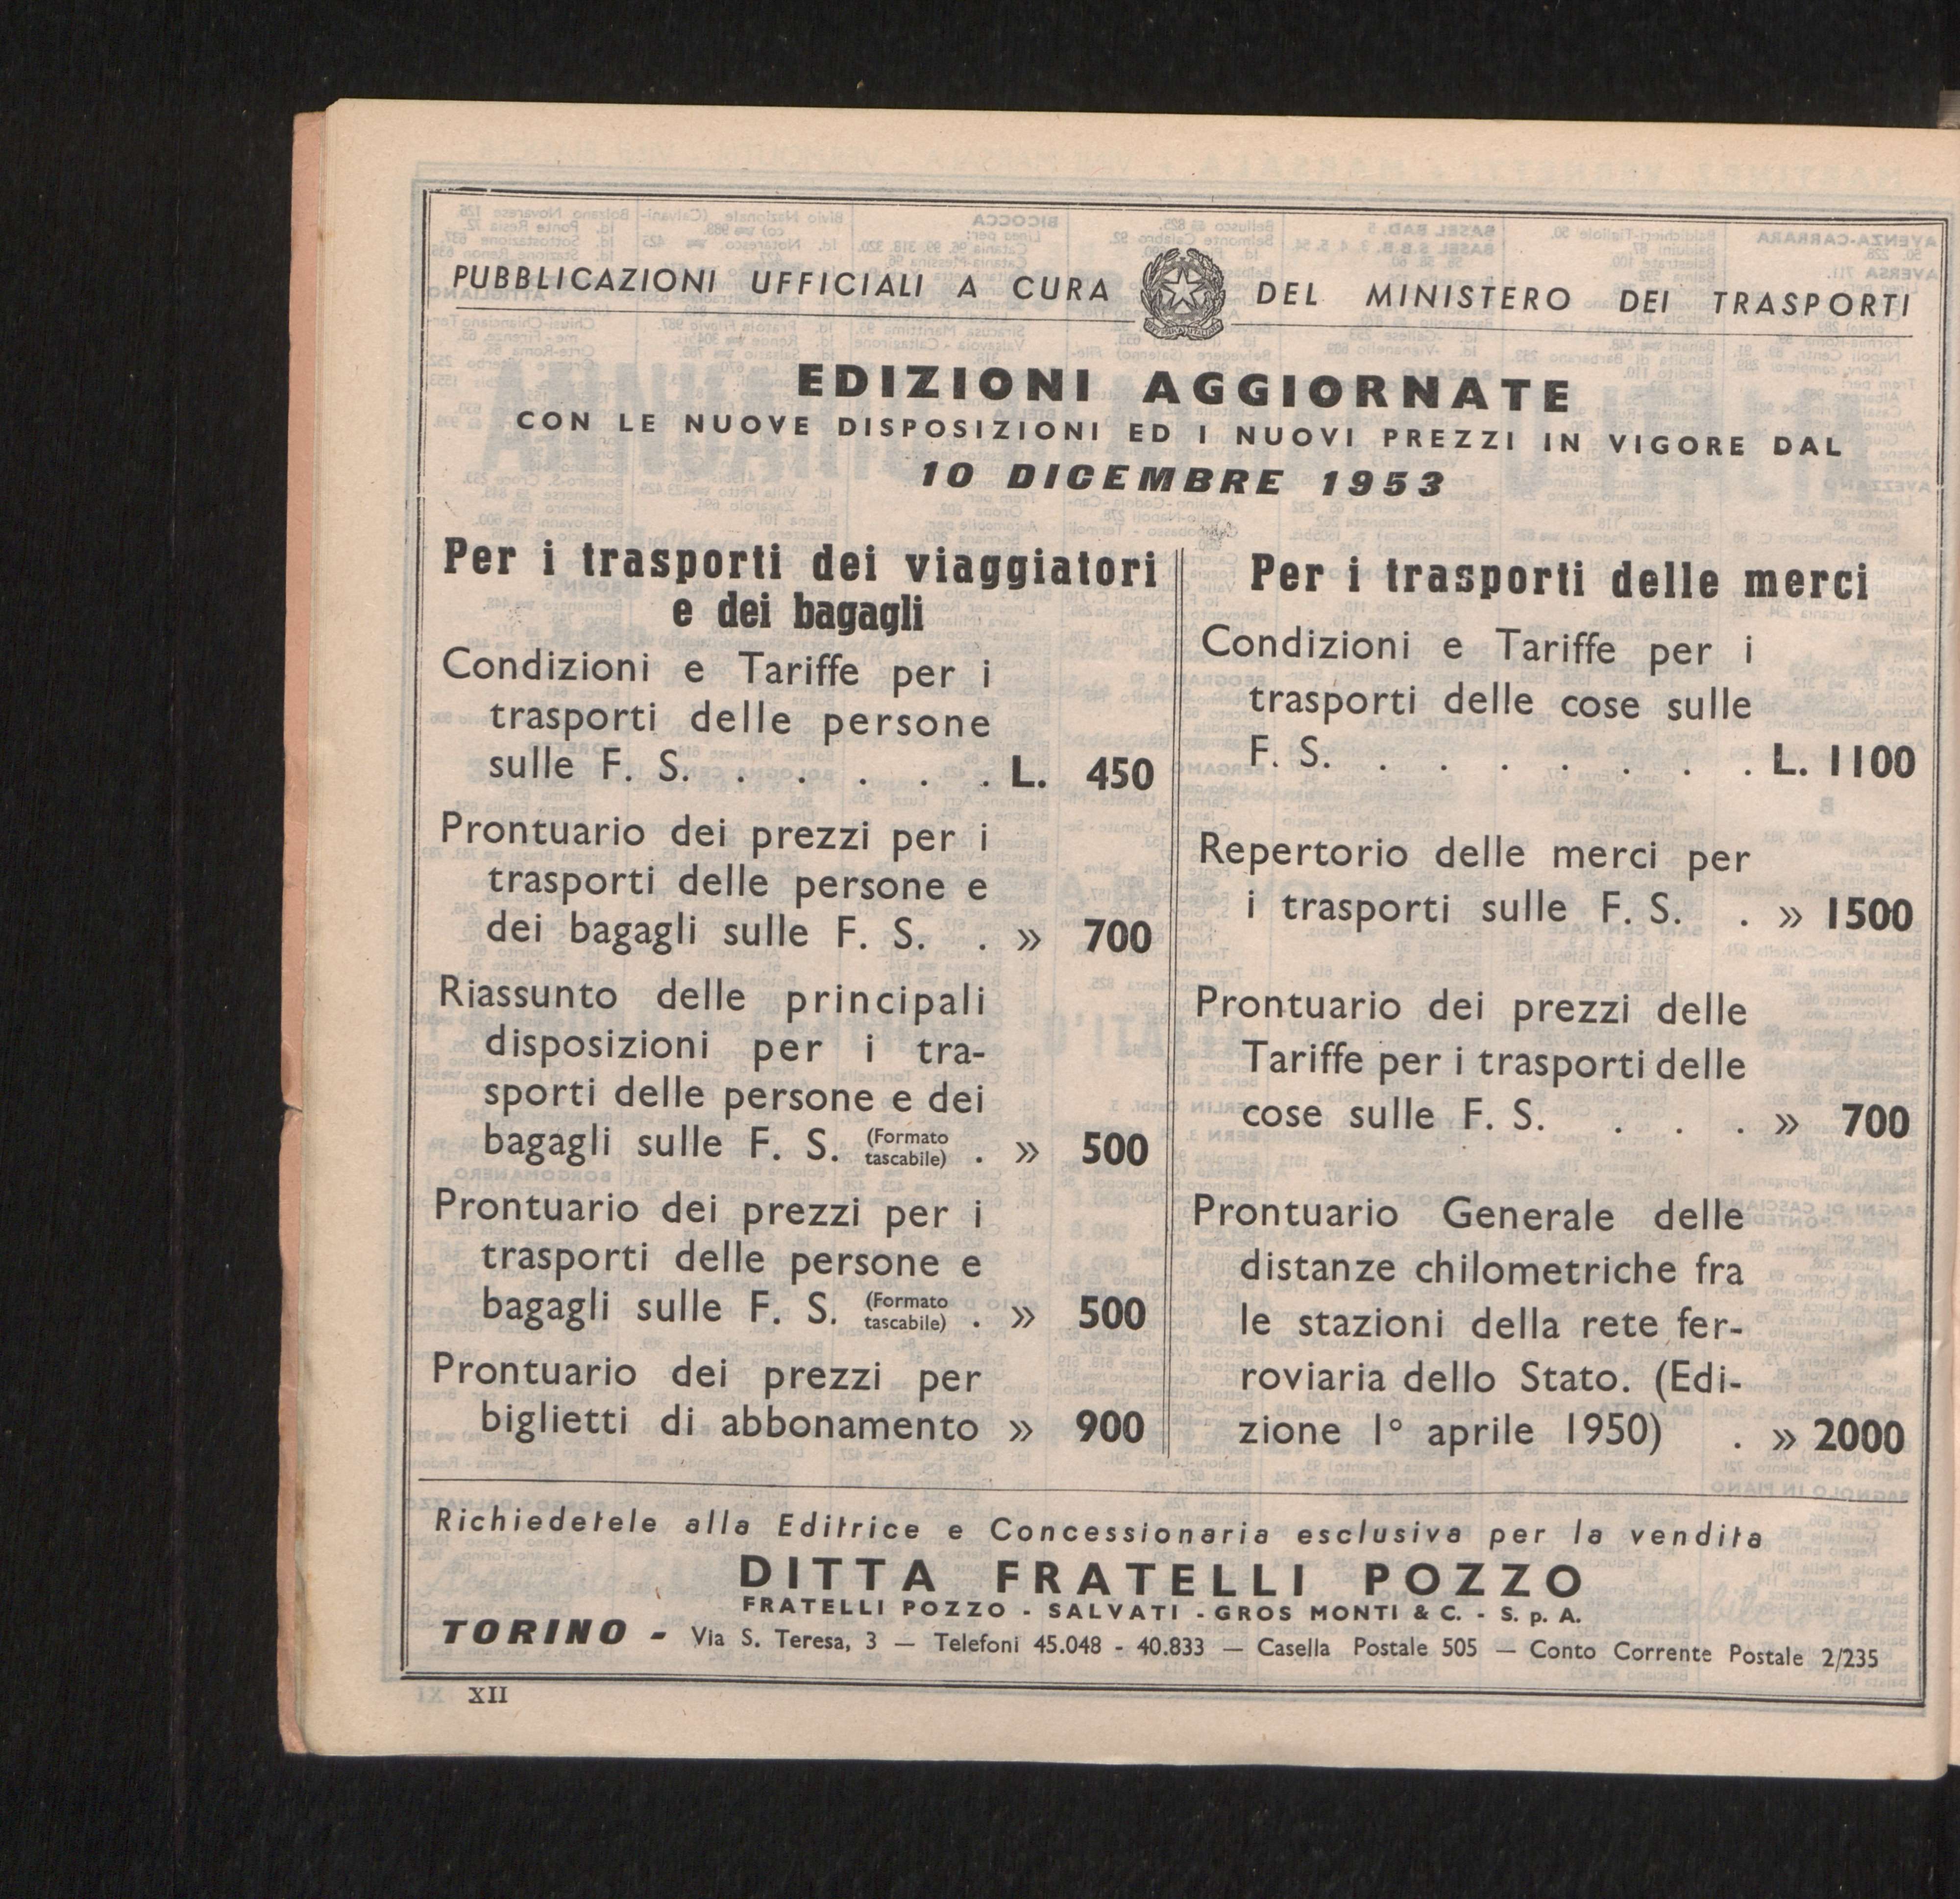 PUBBLICAZIONI UFFICIALI A CURA DEL MINISTERO DEI TRASPORTI
EDIZIONI AGGIORNATE
CON LE NUOVE DISPOSIZIONI ED I NUOVI PREZZI IN VIGORE DAL
10 DICEMBRE 1953
Per i trasporti dei viaggiatori
e dei bagagli
Condizioni e Tariffe per i
trasporti delle persone
sulle F. S. . . . . . . L. 450
Prontuario dei prezzi per i
trasporti delle persone e
dei bagagli sulle F. S. . » 700
Riassunto delle principali
disposizioni per i tra-
sporti delle persone e dei
bagagli sulle F. S. (Formato tascabile) . » 500
Prontuario dei prezzi per i
trasporti delle persone e
bagagli sulle F. S. (Formato tascabile) . » 500
Prontuario dei prezzi per
biglietti di abbonamento » 900
Per i trasporti delle merci
Condizioni e Tariffe per i
trasporti delle cose sulle
F. S. . . . . . . . . L. 1100
Repertorio delle merci per
i trasporti sulle F. S. . » 1500
Prontuario dei prezzi delle
Tariffe per i trasporti delle
cose sulle F. S. . . . » 700
Prontuario Generale delle
distanze chilometriche fra
le stazioni della rete fer-
roviaria dello Stato. (Edi-
zione 1° aprile 1950) . » 2000
Richiedetele alla Editrice e Concessionaria esclusiva per la vendita
DITTA FRATELLI POZZO
FRATELLI POZZO - SALVATI - GROS MONTI & C. - S. p. A.
TORINO - Via S. Teresa, 3 — Telefoni 45.048 - 40.833 — Casella Postale 505 — Conto Corrente Postale 2/235
XII